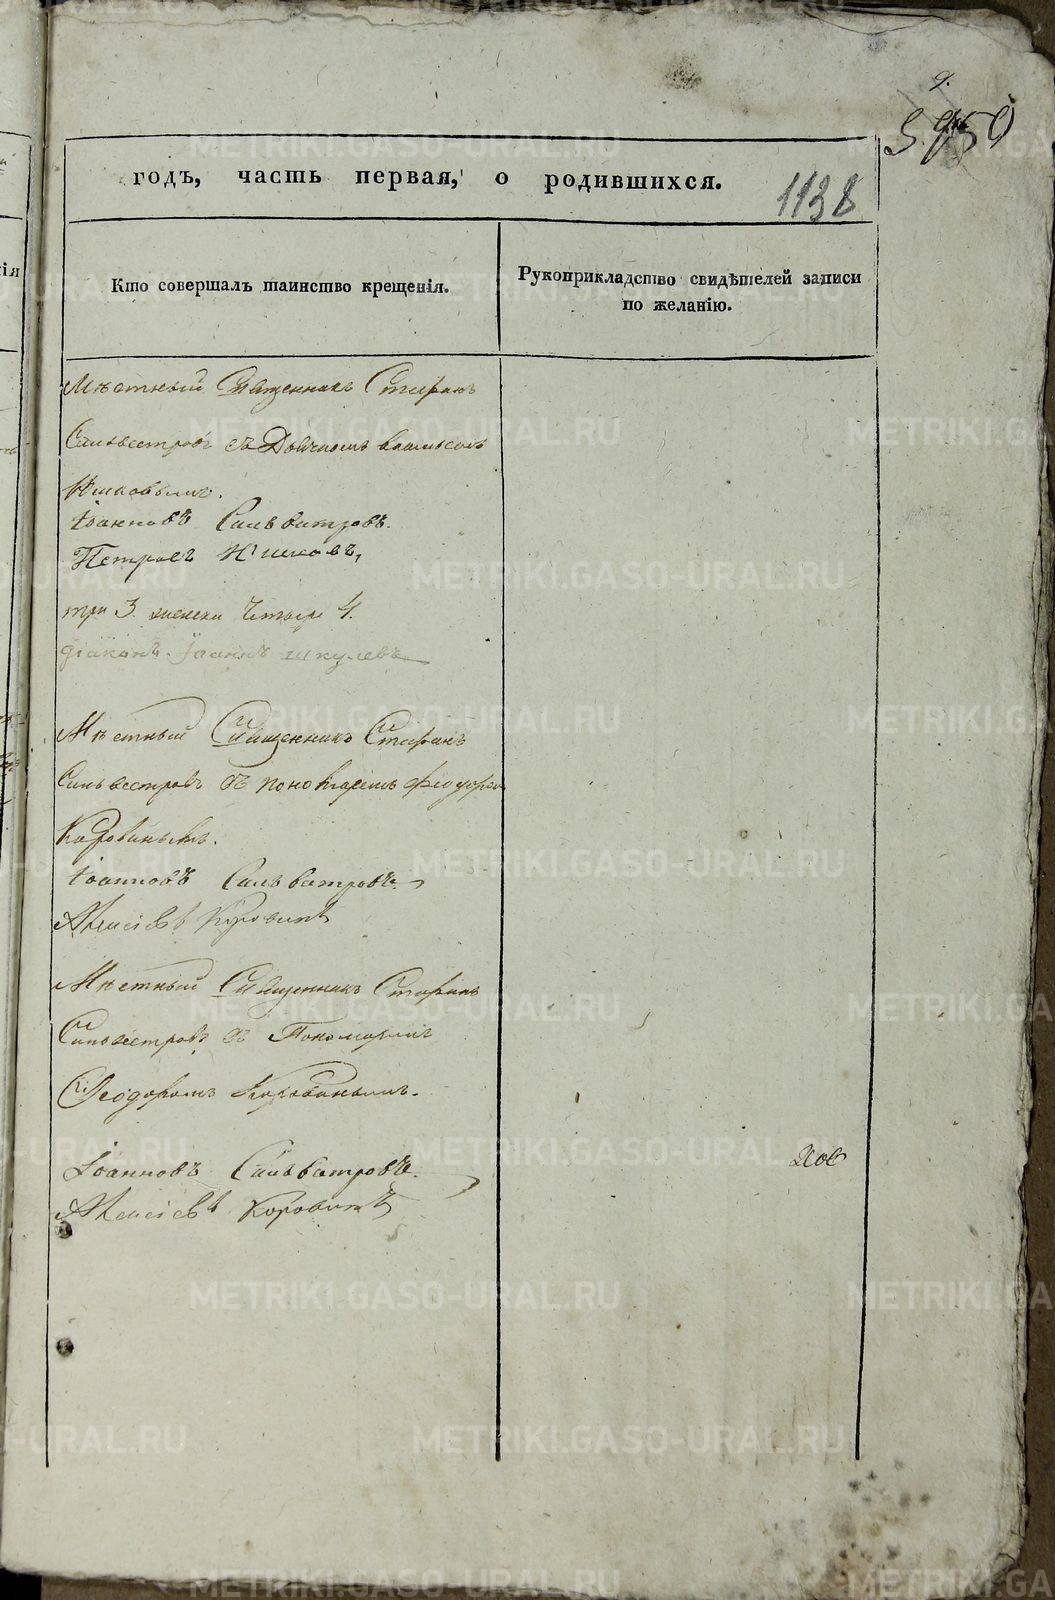 9.
годъ, часть первая, о родившихся.
1138
Кто совершалъ таинство крещенія.
Рукоприкладство свидѣтелей записи
по желанію.
Мѣстный Священникъ Стефанъ
Сильвестровъ съ
Іоанновъ Сильвестровъ.
Петровъ
три 3. женска четыре 4.
діаконъ Іоаннъ
Мѣстный Священникъ Стефанъ
Сильвестровъ съ пономаремъ Феодоромъ
Коровинымъ.
Іоанновъ Сильвестровъ
Алексіевъ Коровинъ
Мѣстный Священникъ Стефанъ
Сильвестровъ съ Пономаремъ
Феодоромъ Коровинымъ.
Іоанновъ Сильвестровъ.
Алексіевъ Коровинъ
METRIKI.GASO-URAL.RU